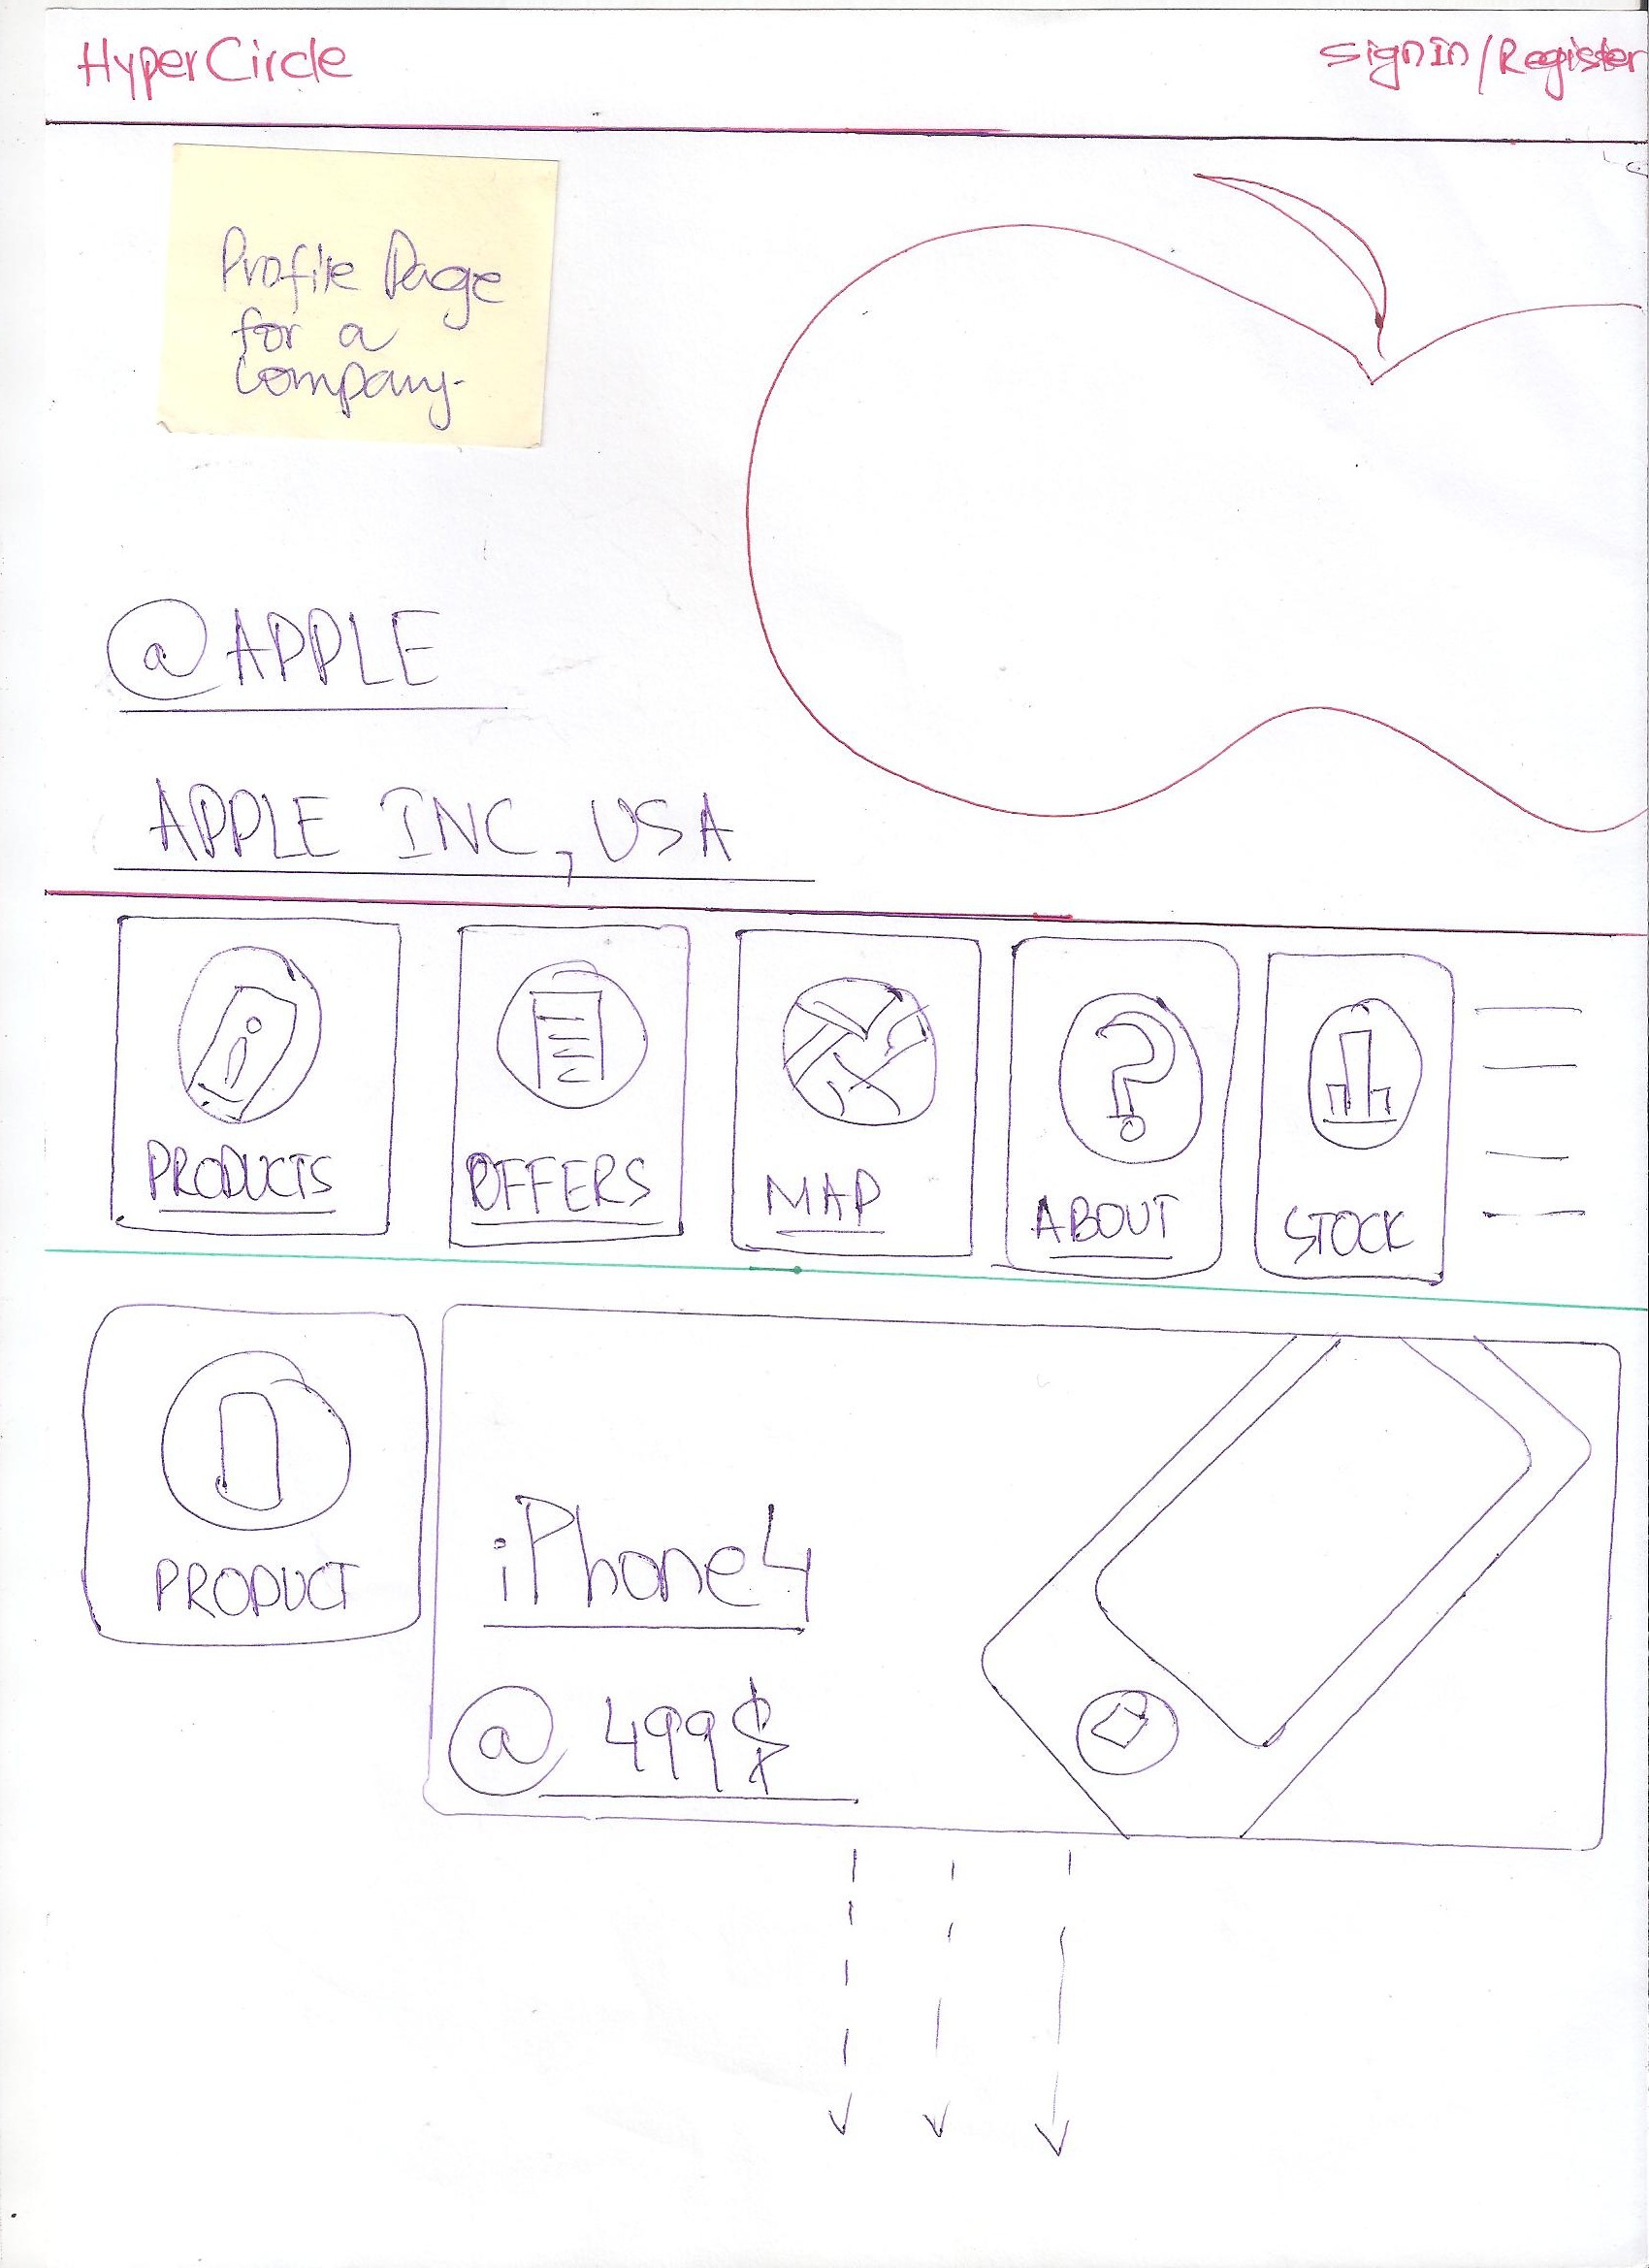 HyperCircle
SignIn/Register
Profile Page
for a
Company.
@APPLE
APPLE INC, USA
PRODUCTS
OFFERS
MAP
ABOUT
STOCK
PRODUCT
iPhone4
@ 499$